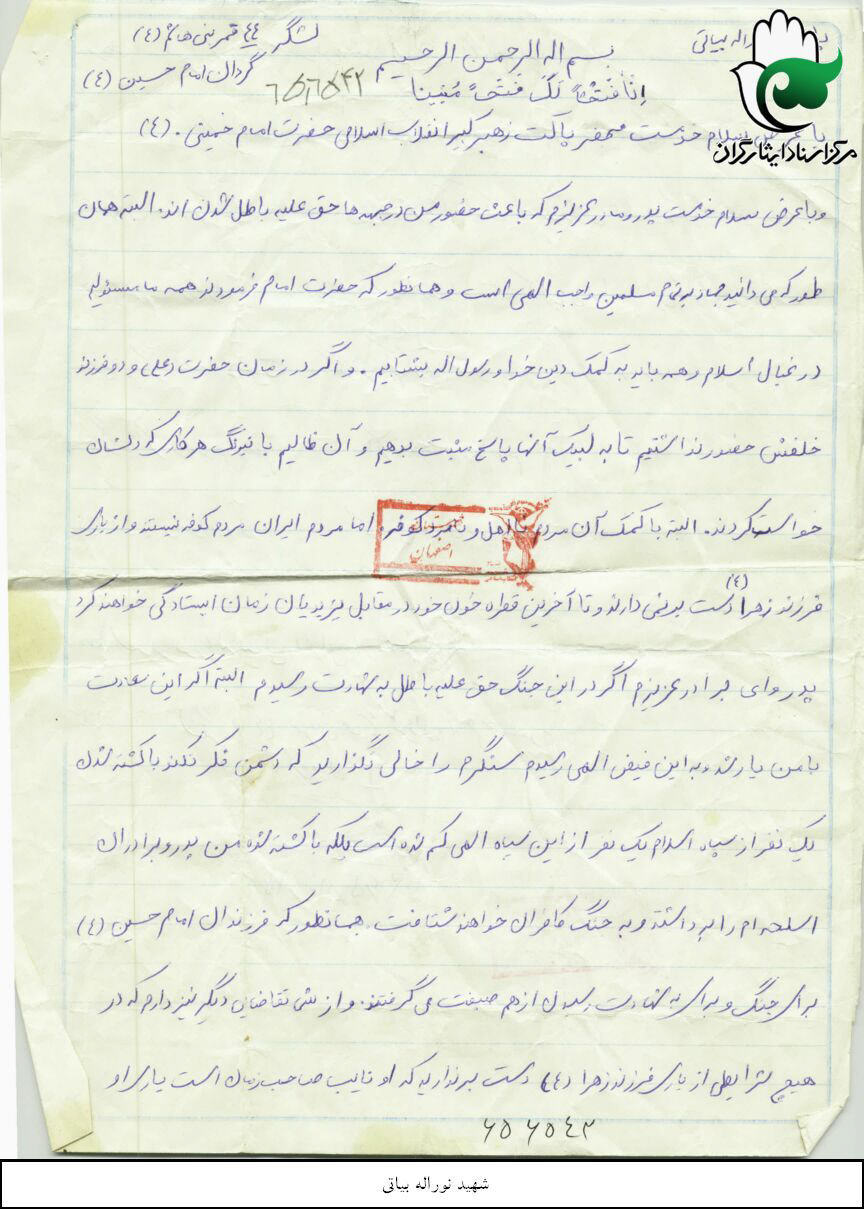 لشگر ٤٤ قمر بنی هاشم (ع)
بسم اله الرحمن الرحیم
گردان امام حسین (ع)
اله بیاتی
٦٥٦٥٤٢
اِنّا فَتَحْنا لَکَ فَتْحاً مُبینا
مرکز اسناد ایثارگران
با عرض سلام خدمت محضر پاکت رهبر کبیر انقلاب اسلامی حضرت امام خمینی . (ع)
و با عرض سلام خدمت پدر و مادر عزیزم که باعث حضور من در جبهه ها حق علیه باطل شدن اند. البته همان
طور که می دانید جهاد بر تمام مسلمین واجب الهی است و همانطور که حضرت امام فرمودند همه ما مسئولیم
در غبال اسلام و همه باید به کمک دین خدا و رسول اله بشتابیم . و اگر در زمان حضرت (علی) و دو فرزند
خلفش حضور نداشتیم تا به لبیک آنها پاسخ مثبت بدهیم و آن ظالیم با نیرنگ هر کاری که دلشان
خواست کردند. البته با کمک آن مردم نااهل و نامرد کوفه، اما مردم ایران مردم کوفه نیستند و از یاری
اصفهان
فرزند زهرا (ع) دست بر نمی دارند و تا آخرین قطره خون خود در مقابل یزیدیان زمان ایستادگی خواهند کرد
پدر و ای برادر عزیزم اگر در این جنگ حق علیه باطل به شهادت رسیدم البته اگر این سعادت
با من یار شد و به این فیض الهی رسیدم سنگرم را خالی نگذارید که دشمن فکر نکند با کشته شدن
یک نفر از سپاه اسلام یک نفر از این سپاه الهی کم شده است بلکه با کشته شده من پدر و برادران
اسلحه ام را برداشته و به جنگ کافران خواهند شتافت. همانطور که فرزندان امام حسین (ع)
برای جنگ و برای به شهادت رسیدن از هم صبقت می گرفتند. و از شما تقاضایی دیگر نیز دارم که در
هیچ شرایطی از یاری فرزند زهرا (ع) دست برندارید که او نایب صاحب زمان است یاری او
٦٥٦٥٤٢
شهید نوراله بیاتی